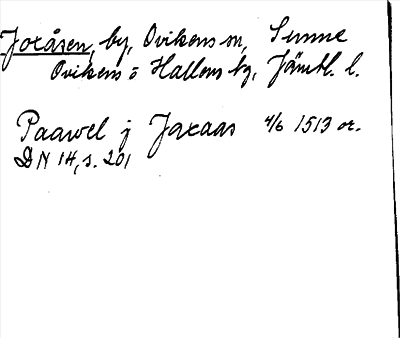 Joxåsen, by, Ovikens sn, Sunne
Ovikens o Hallens tg, Jämtl. l.
Paawel j Joxaas 4/6 1513 or.
DN 14, s. 201